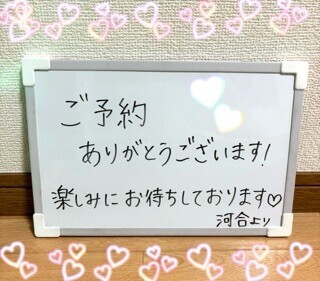 ご予約
ありがとうございます!
楽しみにお待ちしております♡
河合より